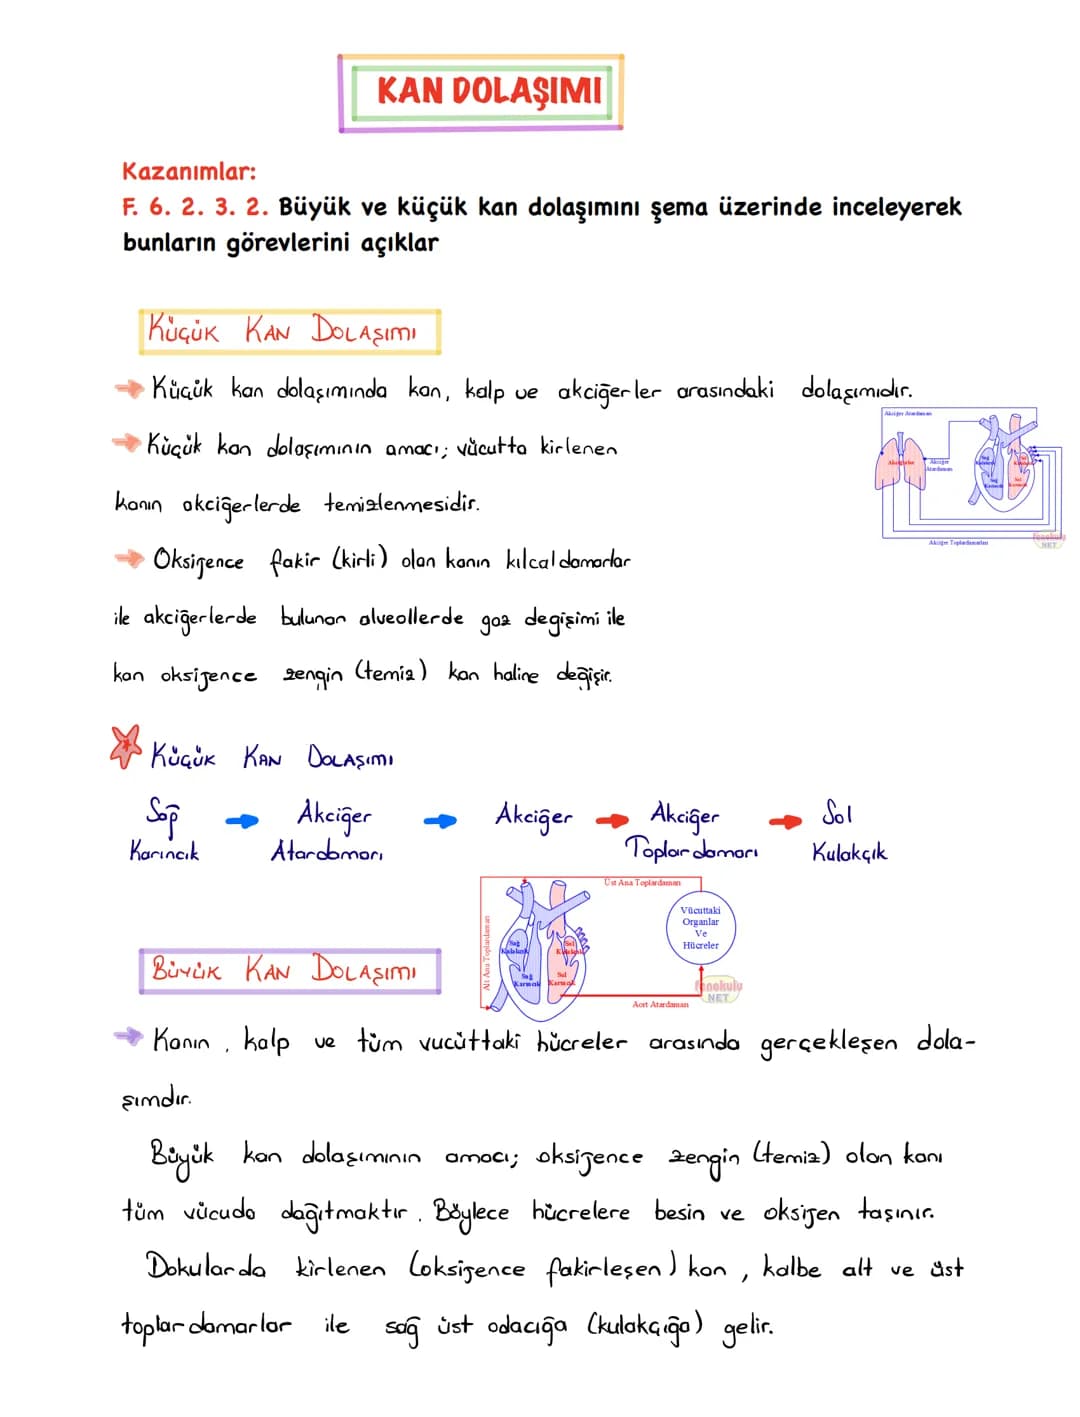 KAN DOLAŞIMI
Kazanımlar:
F. 6. 2. 3. 2. Büyük ve küçük kan dolaşımını şema üzerinde inceleyerek
bunların görevlerini açıklar
KÜÇÜK KAN DOLAŞIMI
Küçük kan dolaşımında kan, kalp ve akciğerler arasındaki dolaşımıdır.
Akciğer Atardamarı
Akciğerler
Akciğer
Atardamarı
Sağ
Kulakçık
Sol
Kulakçık
Sağ
Karıncık
Sol
Karıncık
Akciğer Toplardamarları
fenokulu
NET
Küçük kan dolaşımının amacı; vücutta kirlenen
kanın akciğerlerde temizlenmesidir.
Oksijence fakir (kirli) olan kanın kılcal damarlar
ile akciğerlerde bulunan alveollerde gaz degişimi ile
kan oksijence zengin (temiz) kan haline değişir.
KÜÇÜK KAN DOLAŞIMI
Sağ
Karıncık
Akciğer
Atardamarı
Akciğer
Akciğer
Toplardamarı
Sol
Kulakçık
Üst Ana Toplardamarı
Alt Ana Toplardamarı
Vücuttaki
Organlar
Ve
Hücreler
Sağ
Kulakçık
Sol
Kulakçık
Sağ
Karıncık
Sol
Karıncık
Aort Atardamarı
fenokulu
NET
BÜYÜK KAN DOLAŞIMI
Kanın, kalp ve tüm vucüttaki hücreler arasında gerçekleşen dola-
şımdır.
Büyük kan dolaşımının amacı; oksijence zengin (temiz) olan kanı
tüm vücuda dağıtmaktır. Böylece hücrelere besin ve oksijen taşınır.
Dokularda kirlenen (oksijence fakirleşen) kan, kalbe alt ve üst
toplardamarlar ile sağ üst odacığa (kulakçığa) gelir.